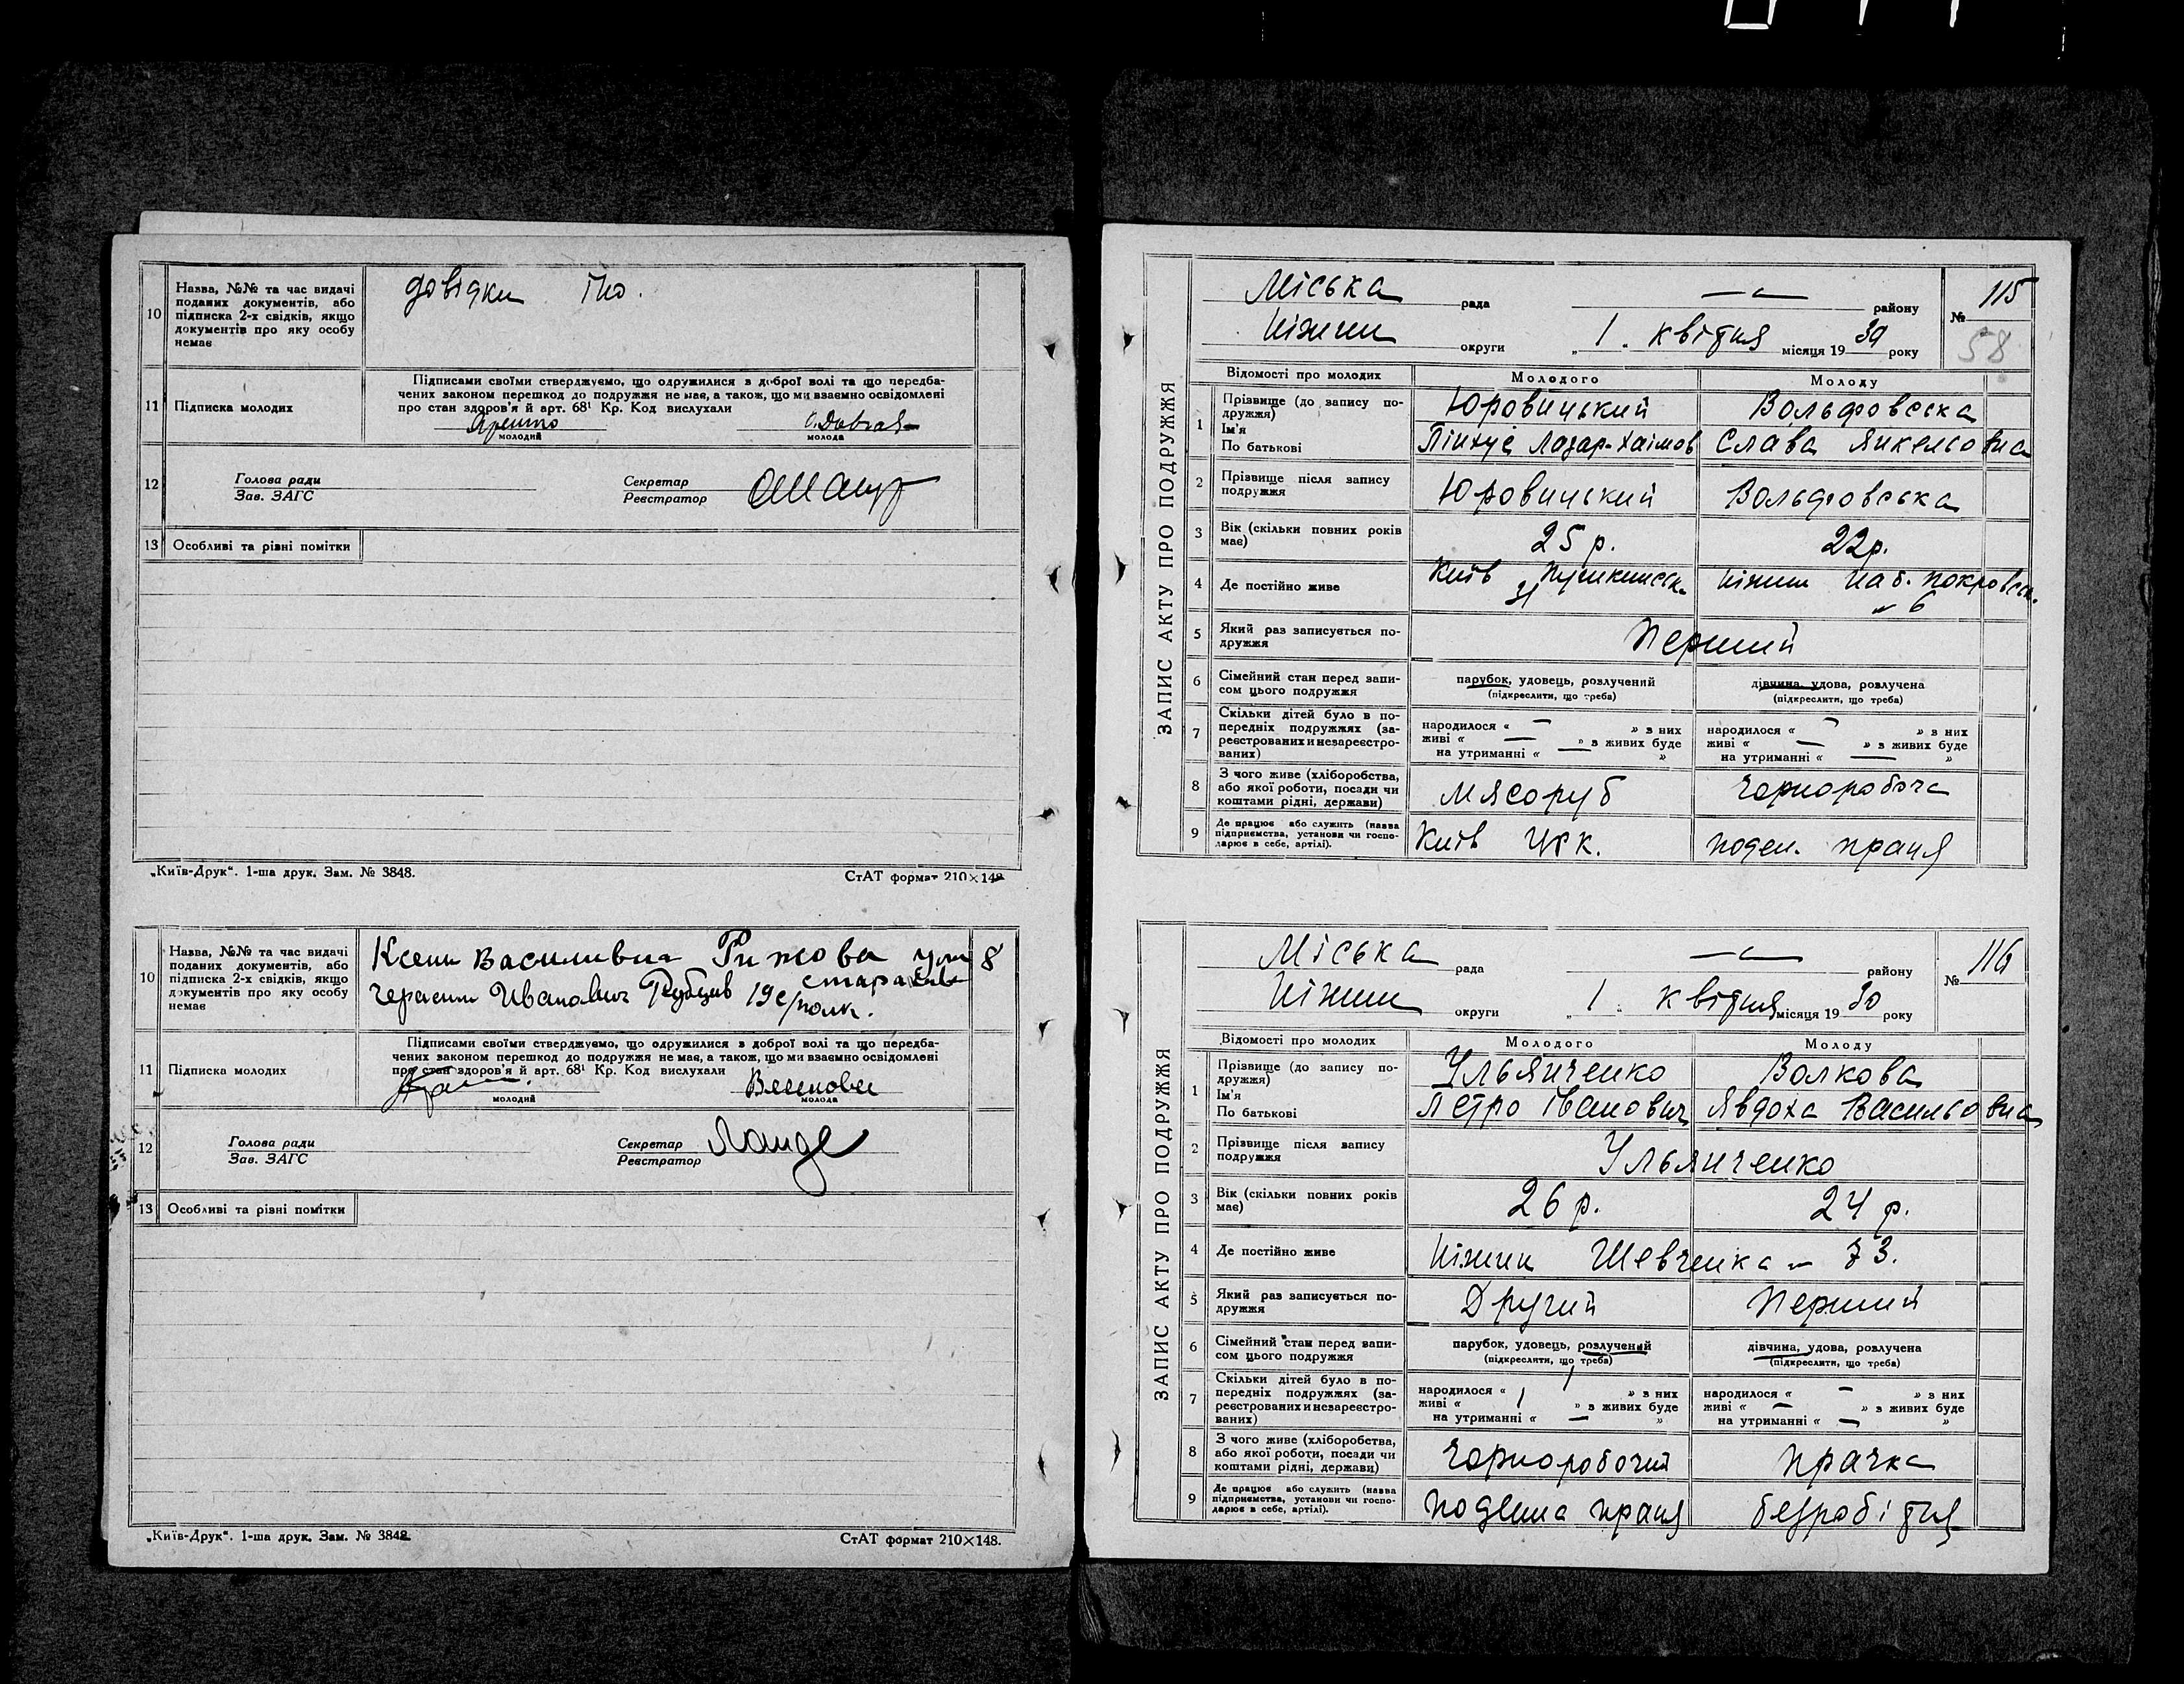 10 Назва, №№ та час видачі
поданих документів, або
підписка 2-х свідків, якщо
документів про яку особу
немає
довідки
11 Підписка молодих
Підписами своїми стверджуємо, що одружилися з доброї волі та що передба-
чених законом перешкод до подружжя не має, а також, що ми взаємно освідомлені
про стан здоров'я й арт. 68¹ Кр. Код вислухали
молодий молода
12 Голова ради
Зав. ЗАГС
Секретар
Реєстратор
13 Особливі та різні помітки
„Київ-Друк“. 1-ша друк. Зам. № 3848.
СтАТ формат 210×148
10 Назва, №№ та час видачі
поданих документів, або
підписка 2-х свідків, якщо
документів про яку особу
немає
Ксени Василивна Рижова 8
Герасим Иванович Рубцов 19 с/полк.
11 Підписка молодих
Підписами своїми стверджуємо, що одружилися з доброї волі та що передба-
чених законом перешкод до подружжя не має, а також, що ми взаємно освідомлені
про стан здоров'я й арт. 68¹ Кр. Код вислухали
молодий молода
12 Голова ради
Зав. ЗАГС
Секретар
Реєстратор
Ланде
13 Особливі та різні помітки
„Київ-Друк“. 1-ша друк. Зам. № 3848.
СтАТ формат 210×148.
ЗАПИС АКТУ ПРО ПОДРУЖЖЯ
Міська рада — району
№ 115
58
Ніжин округи „1„ квітня місяця 1930 року
Відомості про молодих Молодого Молоду
1 Прізвище (до запису по-
дружжя)
Ім'я
По батькові
Юровицький Вольфовська
Пінхус Лазар-Хаімов Слава Янкельовна
2 Прізвище після запису
подружжя
Юровицький Вольфовська
3 Вік (скільки повних років
має)
25 р. 22 р.
4 Де постійно живе
Київ Пушкинськ. Ніжин Наб. Покровськ.
31 6
5 Який раз записується по-
дружжя
Перший
6 Сімейний стан перед запи-
сом цього подружжя
парубок, удовець, розлучений
(підкреслити, що треба)
дівчина, удова, розлучена
(підкреслити, що треба)
7 Скільки дітей було в по-
передніх подружжях (за-
реєстрованих и незареєстро-
ваних)
народилося « — » з них
живі « — » з живих буде
на утриманні « — »
народилося « — » з них
живі « — » з живих буде
на утриманні « — »
8 З чого живе (хліборобства,
або якої роботи, посади чи
коштами рідні, держави)
Мясоруб Чорноробоча
9 Де працює або служить (назва
підприємства, установи чи госпо-
дарює в себе, артілі).
Київ ЦРК. поден. праця
ЗАПИС АКТУ ПРО ПОДРУЖЖЯ
Міська рада — району
№ 116
Ніжин округи „1 квітня місяця 1930 року
Відомості про молодих Молодого Молоду
1 Прізвище (до запису по-
дружжя)
Ім'я
По батькові
Ульянченко Волкова
Петро Іванович Явдоха Васильовна
2 Прізвище після запису
подружжя
Ульянченко
3 Вік (скільки повних років
має)
26 р. 24 р.
4 Де постійно живе
Ніжин Шевченка — 73.
5 Який раз записується по-
дружжя
Другий Перший
6 Сімейний стан перед запи-
сом цього подружжя
парубок, удовець, розлучений
(підкреслити, що треба)
дівчина, удова, розлучена
(підкреслити, що треба)
7 Скільки дітей було в по-
передніх подружжях (за-
реєстрованих и незареєстро-
ваних)
народилося « 1 » з них
живі « 1 » з живих буде
на утриманні « — »
народилося « — » з них
живі « — » з живих буде
на утриманні « — »
8 З чого живе (хліборобства,
або якої роботи, посади чи
коштами рідні, держави)
Чорноробочий Прачка
9 Де працює або служить (назва
підприємства, установи чи госпо-
дарює в себе, артілі).
поденна праця безробітня